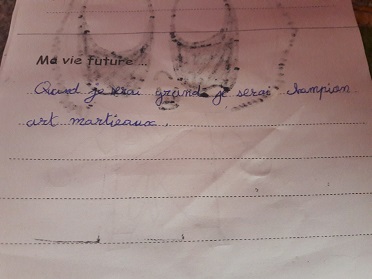 Ma vie future...
Quand je serai grand je serai champion
art martieaux.